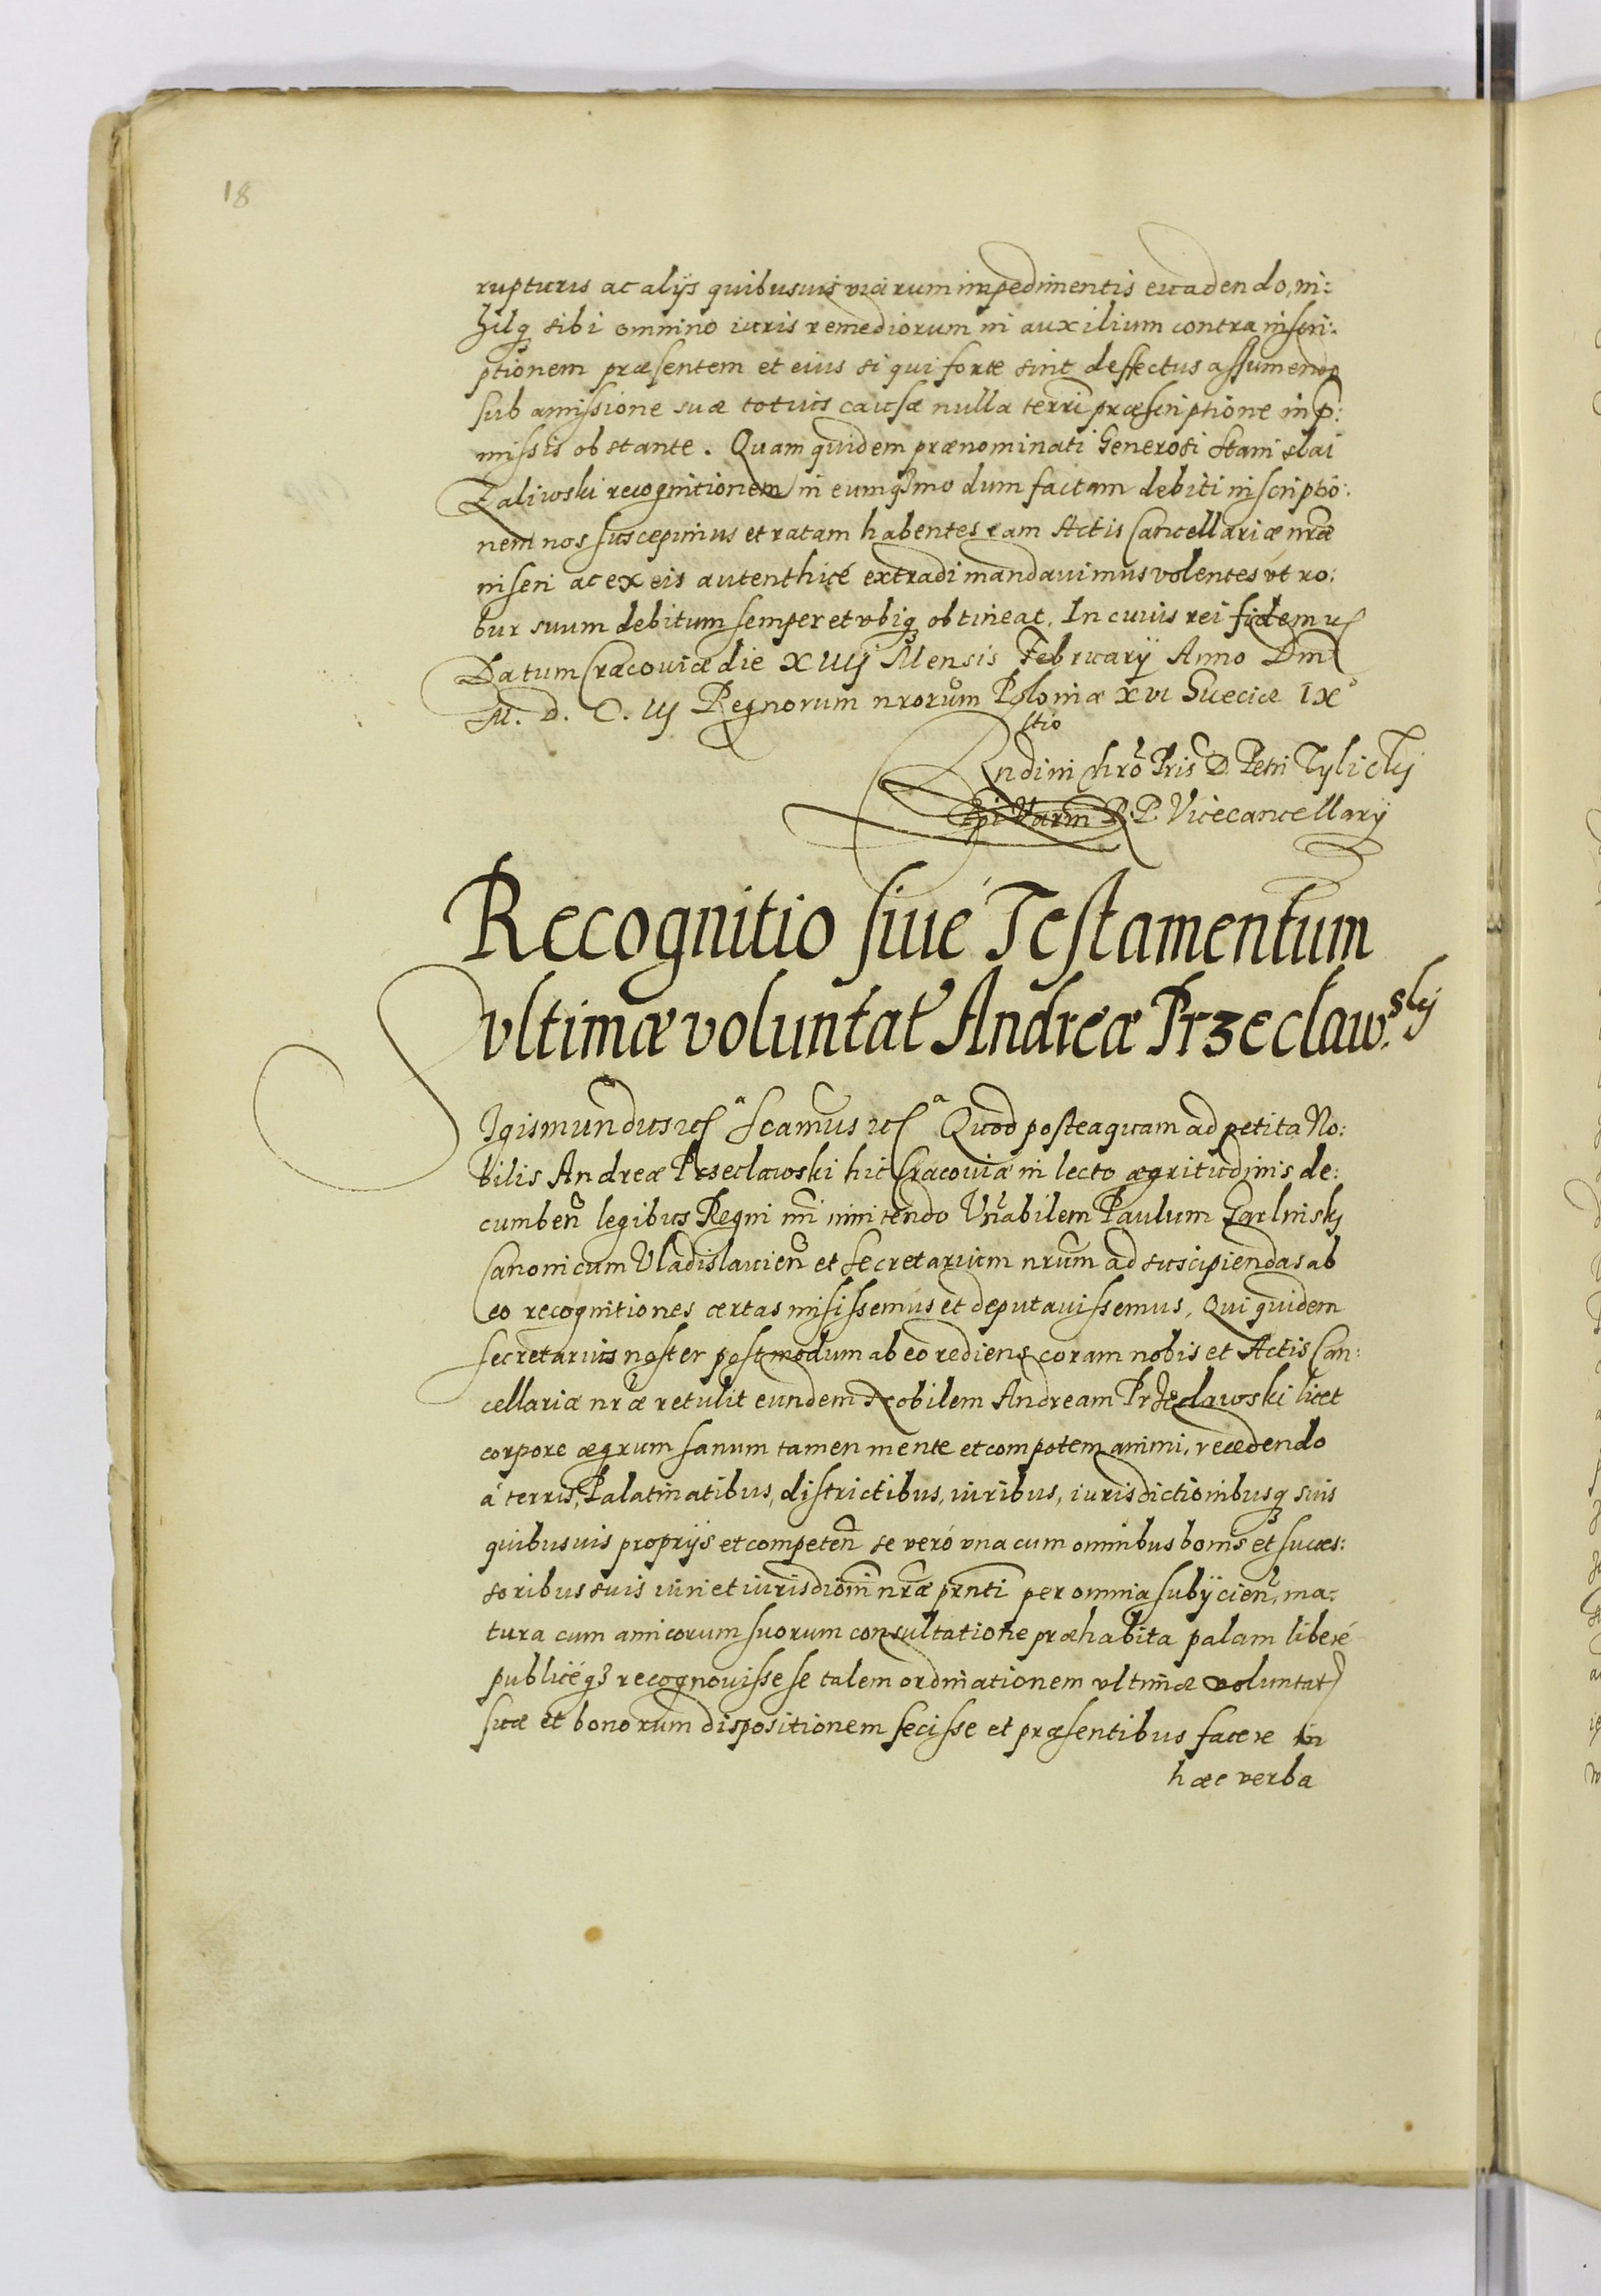 18
rupturis ac alijs quibusuis viarum impedimentis euadendo, ni:
hilq3 sibi omnino iuris remediorum in auxilium contra inscri:
ptionem præsentem et eius si qui forte sint deffectus assumendo
sub amissione suæ totius caussæ nulla terrm præscriptione in p:
missis obstante. Quam quidem prænominati Generosi Stanislai
Zaliwski recognitionem in eumq3 modum factam debiti inscriptio:
nem nos suscepimus et ratam habentes eam Actis Cancellariæ nræ
inseri ac ex eis autenthicé extradi mandauimus volentes vt ro:
bur suum debitum semper et vbiq3 obtineat. In cuius rei fidem
Datum Cracouiæ die XIIIj Mensis Februarij Anno Dni
M. D. C. iij Regnorum nrorum Poloniæ xvi Sueciæ ix°
Rndi in chro Pris D. Petri Tylicky
Epi Varm R. P. Vicecancellarij
Recognitio siué Testamentum
vltimæ voluntat Andreæ Przecław.sky
Sigismundus Scamus Quod posteaquam ad petita No:
bilis Andreæ Przeclawski hic Cracouiæ in lecto ægritudinis de:
cumben legibus Regni nri innitendo Vnrabilem Paulum Garlinsky
Canonicum Vladislauien et Secretarium nrum ad suscipiendas ab
eo recognitiones certas misissemus et deputauissemus, Qui quidem
secretarius noster postmodum ab eo rediens coram nobis et Actis Can:
cellariæ nræ retulit eundem Nobilem Andream Przeclawski licet
corpore ægrum sanum tamen mente et compotem animi, recedendo
á terris, Palatinatibus, districtibus, iuribus, iurisdictionibusq3 suis
quibusuis proprijs et competen se veró vna cum omnibus bonis et succes:
soribus suis iuri et iurisdioni nræ prnti per omnia subijcien, ma:
tura cum amicorum suorum consultatione præhabita palam liberé
publicéq3 recognouisse se talem ordinationem vltimæ voluntat
suæ et bonorum dispositionem fecisse et præsentibus facere in
hæc verba